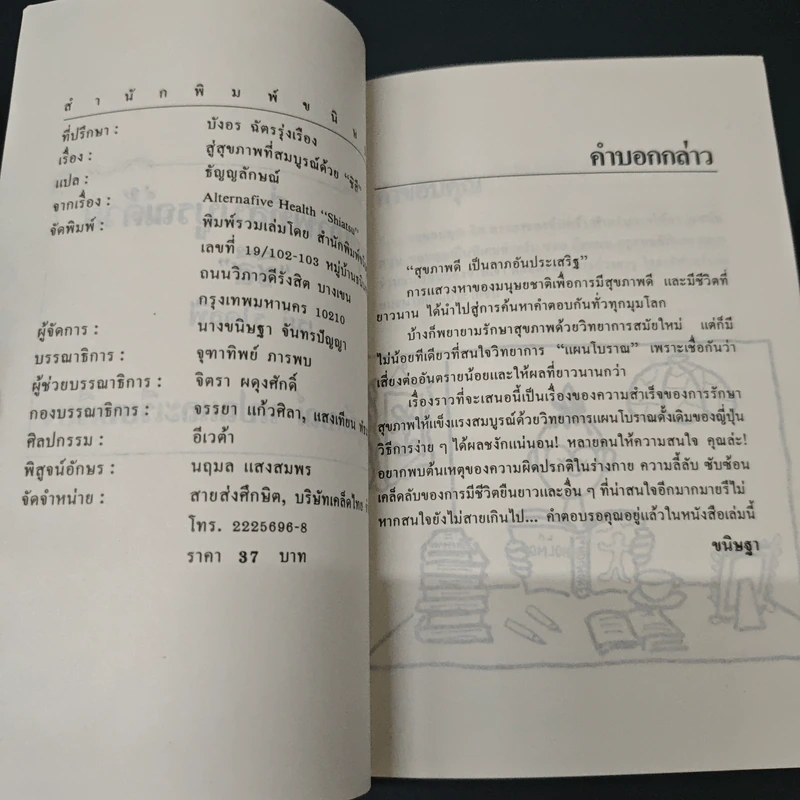 สำนักพิมพ์ขนิษ
ที่ปรึกษา : บังอร ฉัตรรุ่งเรือง
เรื่อง : สู่สุขภาพที่สมบูรณ์ด้วย
แปล : ธัญญลักษณ์
จากเรื่อง : Alternafive Health "Shiatsu"
จัดพิมพ์ : พิมพ์รวมเล่มโดย สำนักพิมพ์
เลขที่ 19/102-103 หมู่บ้าน
ถนนวิภาวดีรังสิต บางเขน
กรุงเทพมหานคร 10210
ผู้จัดการ : นางขนิษฐา จันทรปัญญา
บรรณาธิการ : จุฑาทิพย์ ภารพบ
ผู้ช่วยบรรณาธิการ : จิตรา ผดุงศักดิ์
กองบรรณาธิการ : จรรยา แก้วศิลา, แสงเทียน
ศิลปกรรม : อีเวต้า
พิสูจน์อักษร : นฤมล แสงสมพร
จัดจำหน่าย : สายส่งศึกษิต, บริษัทเคล็ดไทย
โทร. 2225696-8
ราคา 37 บาท
คำบอกกล่าว
"สุขภาพดี เป็นลาภอันประเสริฐ"
การแสวงหาของมนุษยชาติเพื่อการมีสุขภาพดี และมีชีวิตที่
ยาวนาน ได้นำไปสู่การค้นหาคำตอบกันทั่วทุกมุมโลก
บ้างก็พยายามรักษาสุขภาพด้วยวิทยาการสมัยใหม่ แต่ก็มี
ไม่น้อยทีเดียวที่สนใจวิทยาการ "แผนโบราณ" เพราะเชื่อกันว่า
เสี่ยงต่ออันตรายน้อยและให้ผลที่ยาวนานกว่า
เรื่องราวที่จะเสนอนี้เป็นเรื่องของความสำเร็จของการรักษา
สุขภาพให้แข็งแรงสมบูรณ์ด้วยวิทยาการแผนโบราณดั้งเดิมของญี่ปุ่น
วิธีการง่าย ๆ ได้ผลชะงักแน่นอน! หลายคนให้ความสนใจ คุณล่ะ!
อยากพบต้นเหตุของความผิดปรกติในร่างกาย ความลี้ลับ ซับซ้อน
เคล็ดลับของการมีชีวิตยืนยาวและอื่น ๆ ที่น่าสนใจอีกมากมายรึไม่
หากสนใจยังไม่สายเกินไป... คำตอบรอคุณอยู่แล้วในหนังสือเล่มนี้
ขนิษฐา